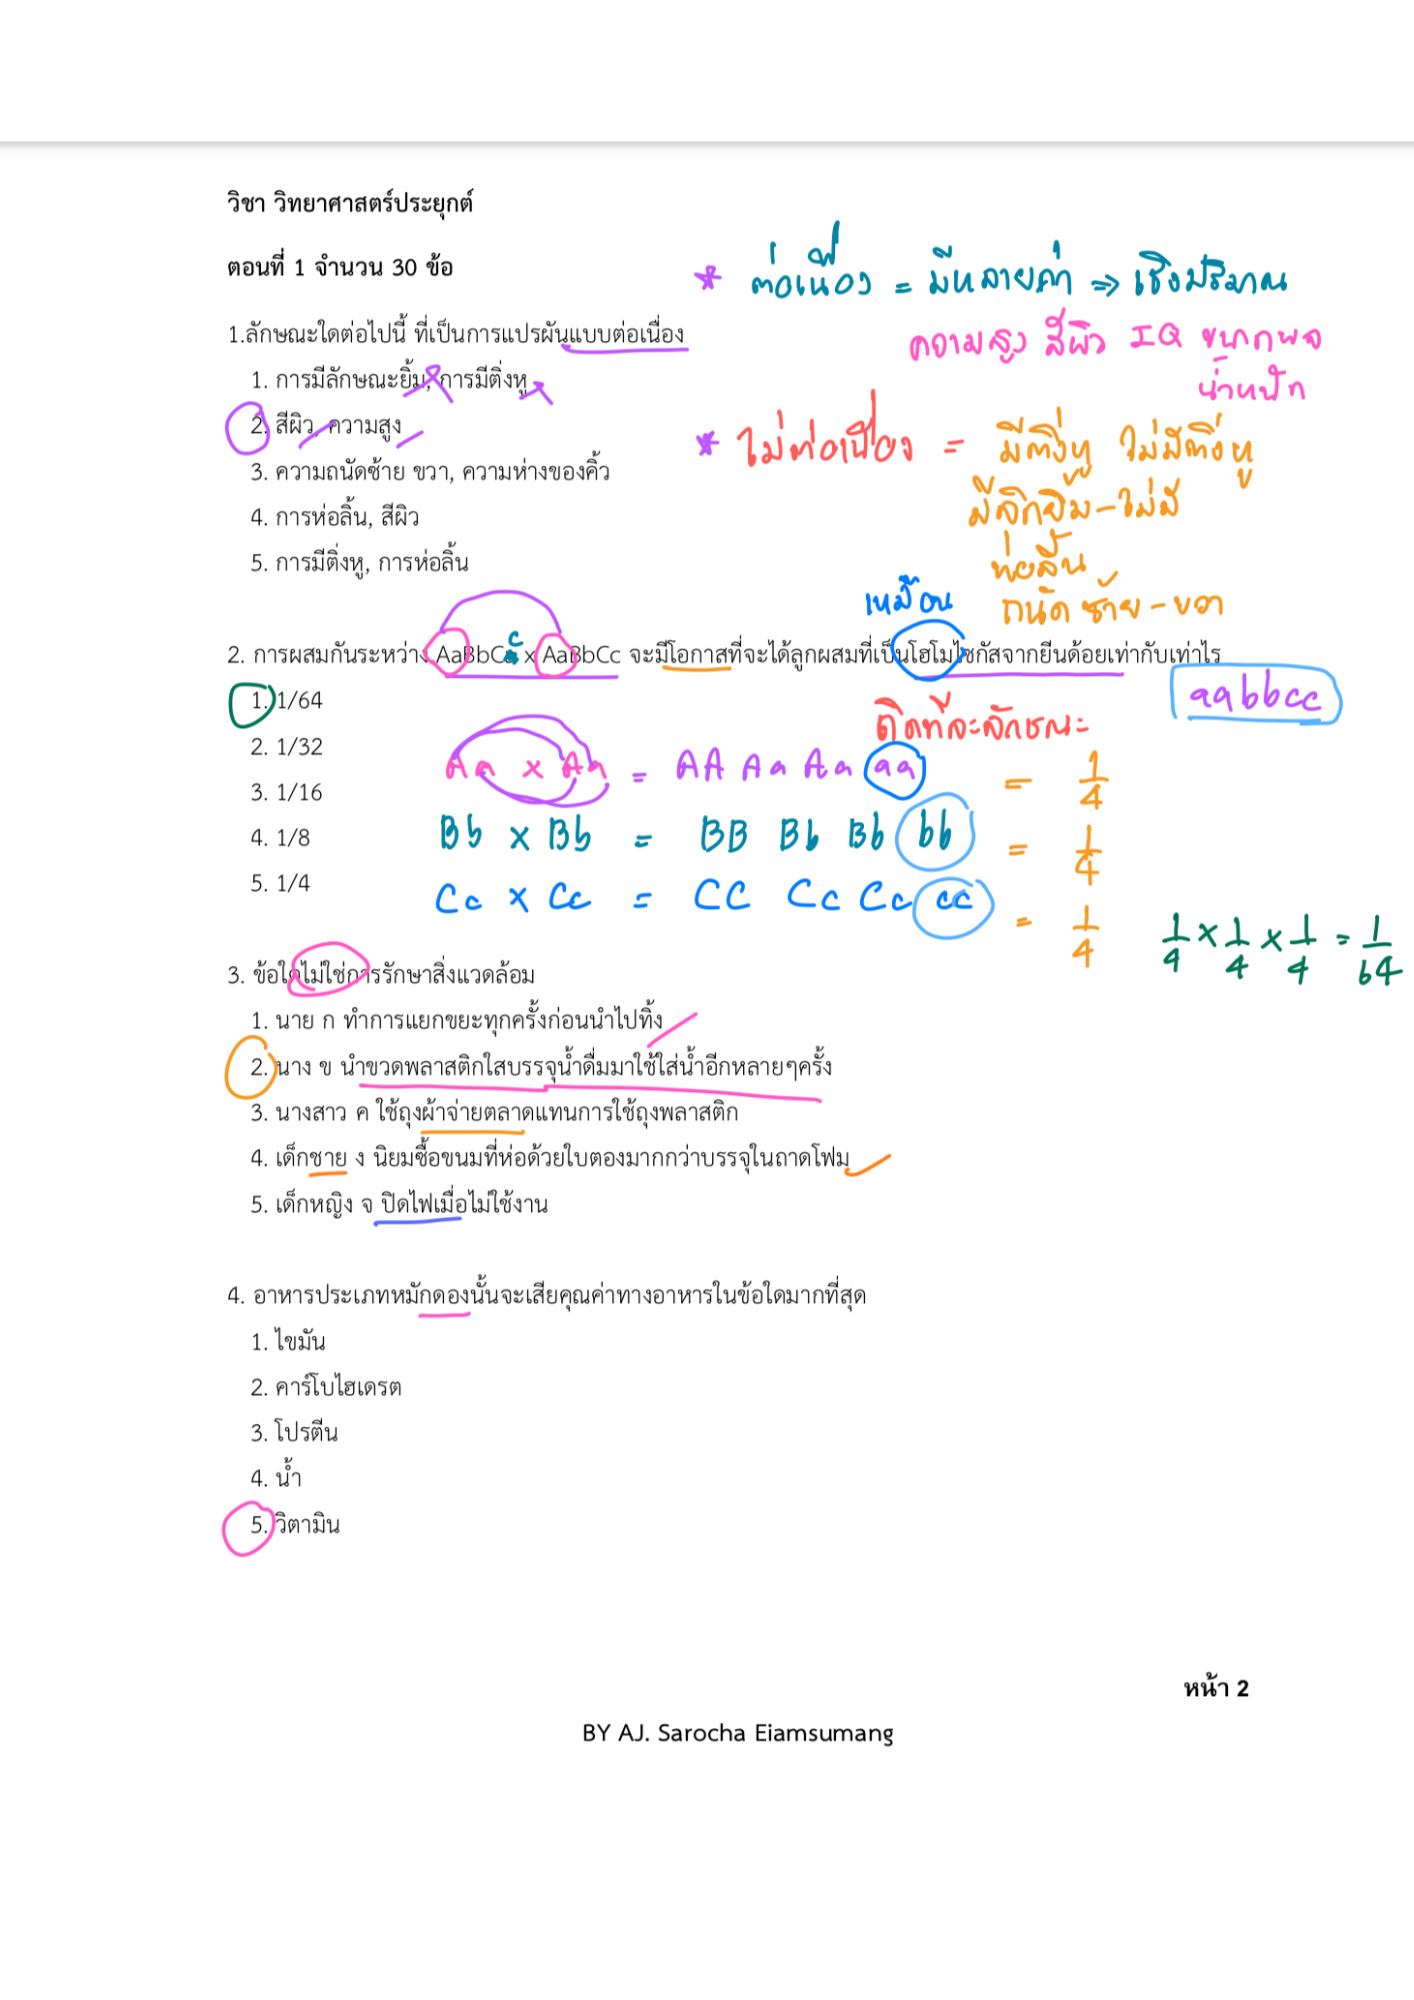 วิชา วิทยาศาสตร์ประยุกต์
ตอนที่ 1 จำนวน 30 ข้อ
* ต่อเนื่อง = มีหลายค่า => เชิงปริมาณ
1.ลักษณะใดต่อไปนี้ ที่เป็นการแปรผันแบบต่อเนื่อง
ความสูง สีผิว IQ ขนาดพจ
น้ำหนัก
1. การมีลักษณะยิ้ม, การมีติ่งหู
2. สีผิว, ความสูง
* ไม่ต่อเนื่อง = มีติ่งหู ไม่มีติ่งหู
3. ความถนัดซ้าย ขวา, ความห่างของคิ้ว
มีลักยิ้ม-ไม่มี
4. การห่อลิ้น, สีผิว
ห่อลิ้น
5. การมีติ่งหู, การห่อลิ้น
ถนัดซ้าย-ขวา
เหมือน
2. การผสมกันระหว่าง AaBbCc x AaBbCc จะมีโอกาสที่จะได้ลูกผสมที่เป็นโฮโมไซกัสจากยีนด้อยเท่ากับเท่าไร
aabbcc
1. 1/64
คิดทีละลักษณะ
2. 1/32
Aa x Aa = AA Aa Aa aa = 1/4
3. 1/16
Bb x Bb = BB Bb Bb bb = 1/4
4. 1/8
5. 1/4
Cc x Cc = CC Cc Cc cc = 1/4
1/4 x 1/4 x 1/4 = 1/64
3. ข้อใดไม่ใช่การรักษาสิ่งแวดล้อม
1. นาย ก ทำการแยกขยะทุกครั้งก่อนนำไปทิ้ง
2. นาง ข นำขวดพลาสติกใสบรรจุน้ำดื่มมาใช้ใส่น้ำอีกหลายๆครั้ง
3. นางสาว ค ใช้ถุงผ้าจ่ายตลาดแทนการใช้ถุงพลาสติก
4. เด็กชาย ง นิยมซื้อขนมที่ห่อด้วยใบตองมากกว่าบรรจุในถาดโฟม
5. เด็กหญิง จ ปิดไฟเมื่อไม่ใช้งาน
4. อาหารประเภทหมักดองนั้นจะเสียคุณค่าทางอาหารในข้อใดมากที่สุด
1. ไขมัน
2. คาร์โบไฮเดรต
3. โปรตีน
4. น้ำ
5. วิตามิน
หน้า 2
BY AJ. Sarocha Eiamsumang